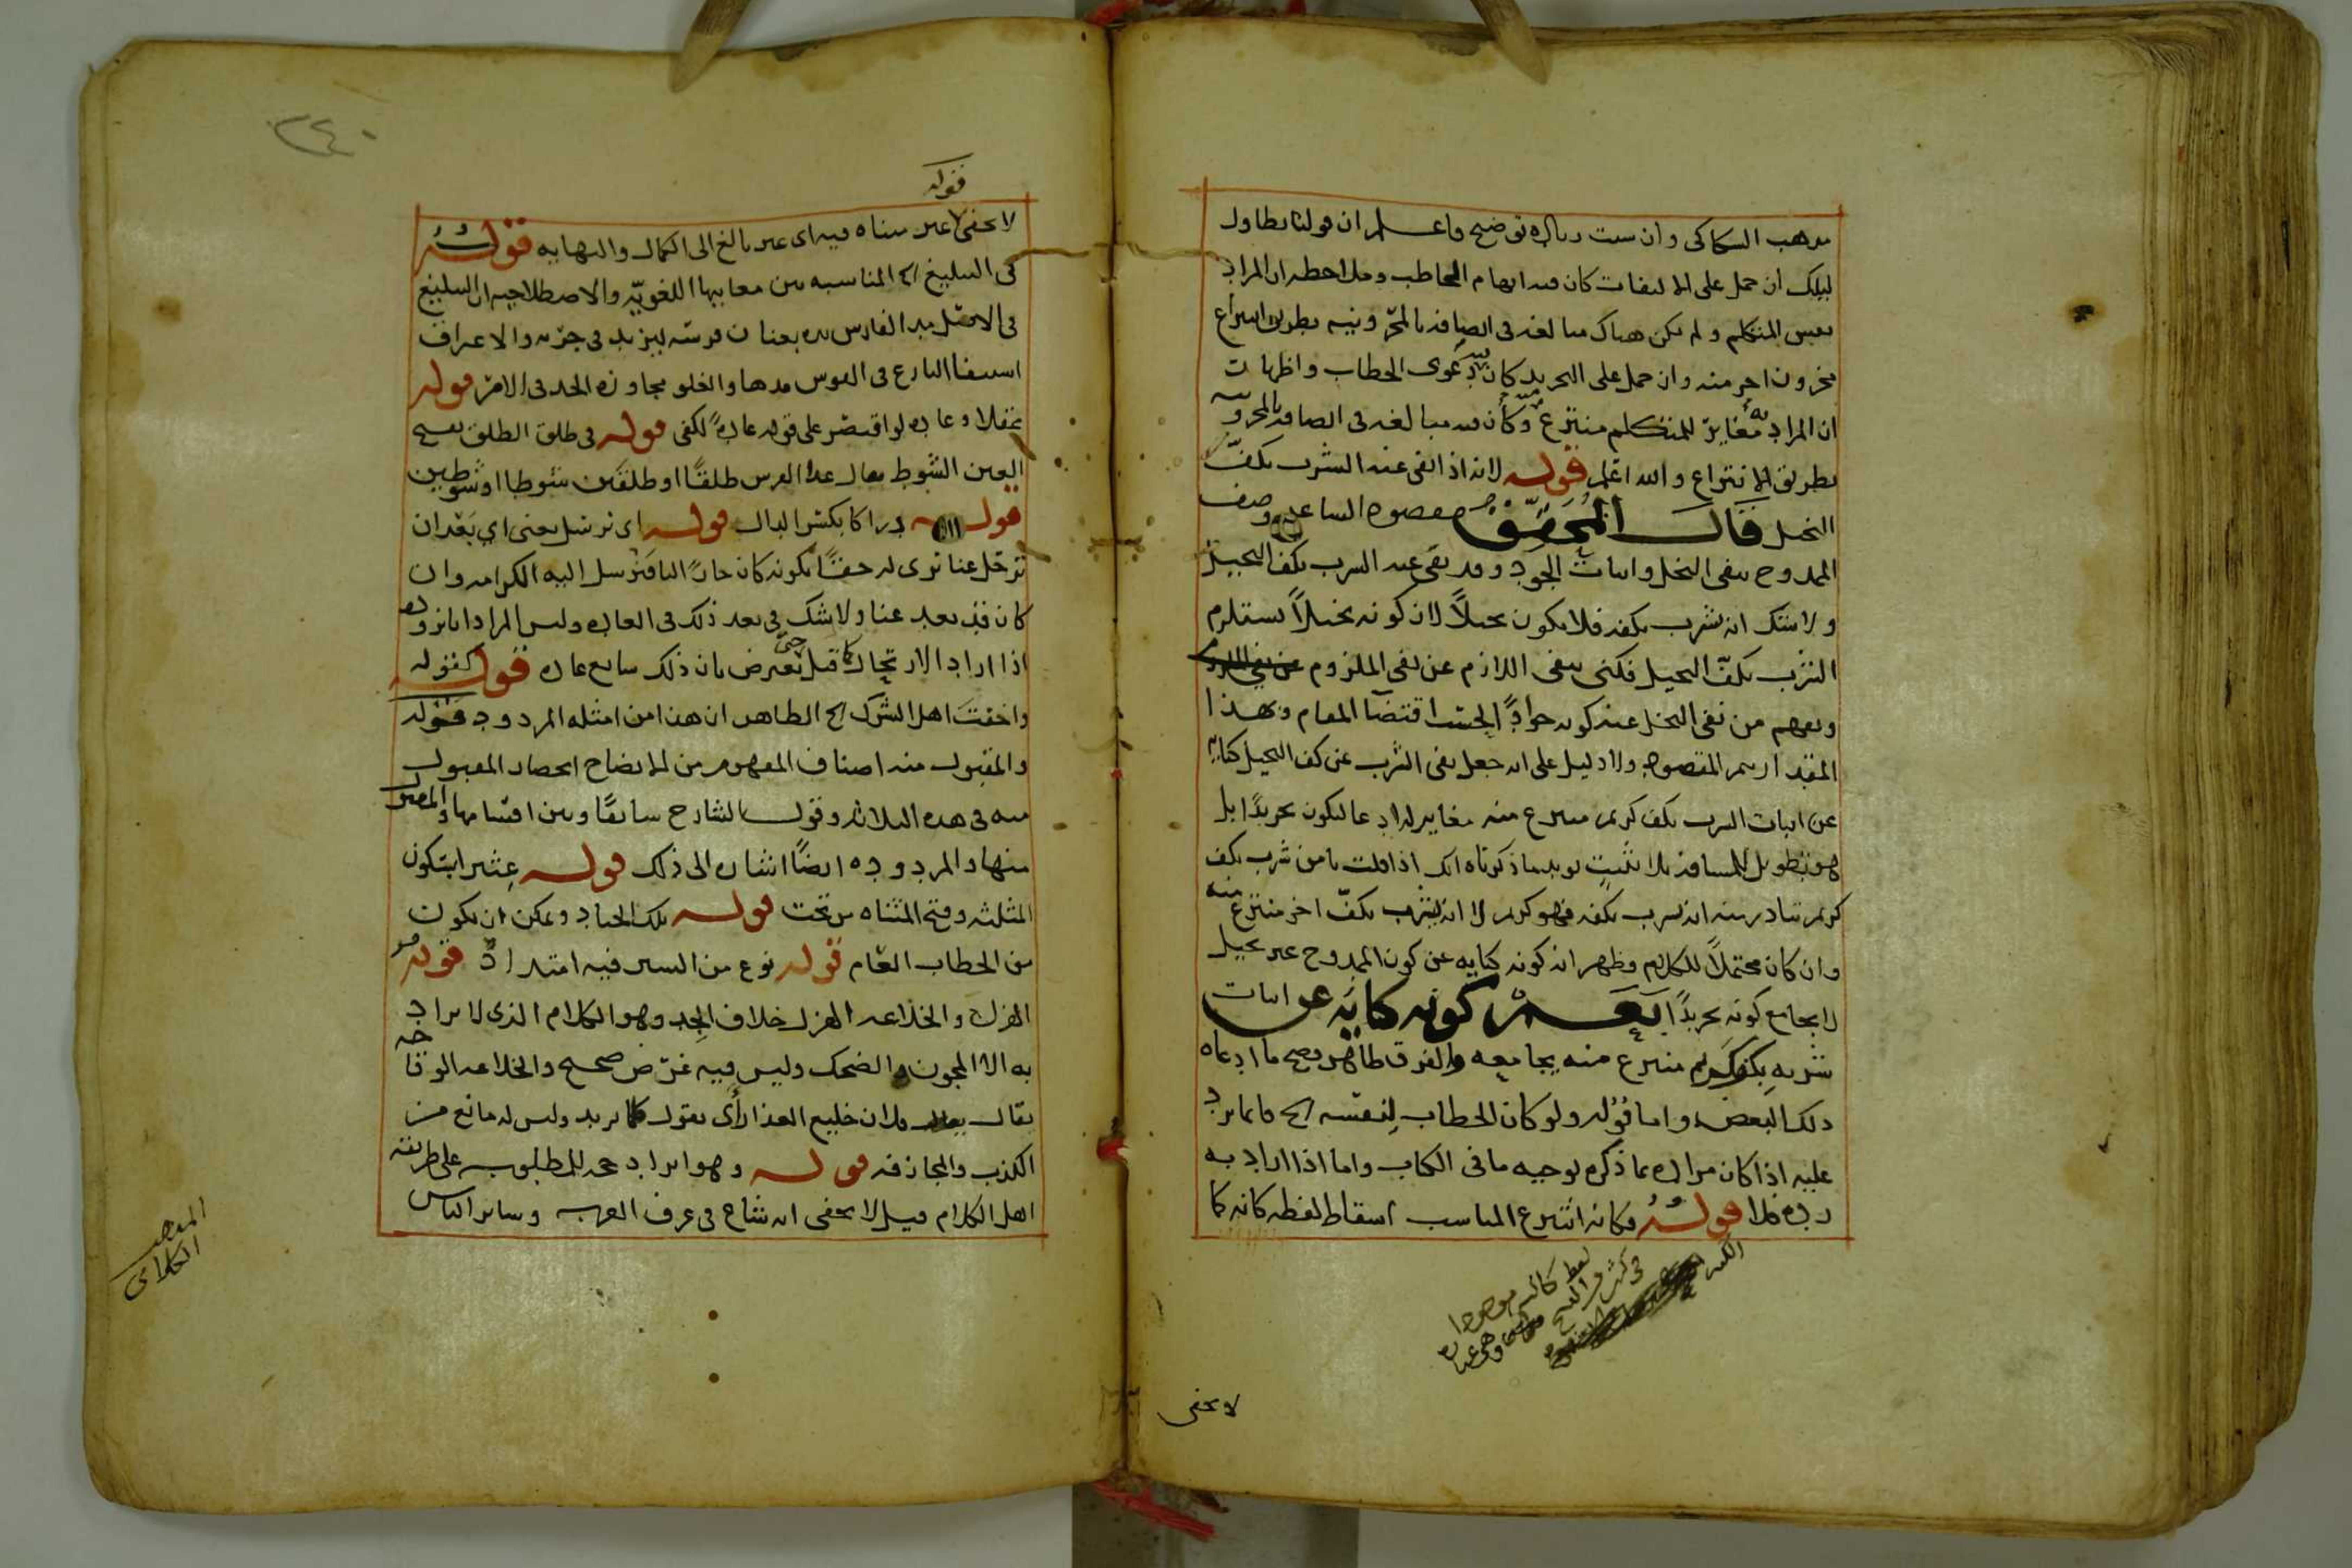 مذهب السكاكي وان سيت زيادة توضيح فاعلم ان قولنا تطاول
ليلك ان حمل على الالتفات كان فيه ايهام المخاطب وملاحظه ان المراد
نفس المتكلم ولم يكن هناك مبالغه في اتصافه بالمحزونيه بطريق انتزاع
محزون اخر منه وان حمل على التجريد كان فيه دعوى الخطاب واظهار
ان المراد به مغاير للمتكلم منتزع منه وكان فيه مبالغه في اتصافه بالمحزونية
بطريق الانتزاع والله اعلم قوله لانه اذا انفى عنه الشرب بكف
البخيل قال المحقق مقصوده الساعر وصف
الممدوح بنفى البخل واثبات الجود وقد نفى عنه الشرب بكف البخيل
ولا شك انه يشرب بكفه فلا يكون بخيلاً لان كونه بخيلاً يستلزم
الشرب بكف البخيل فكنى بنفى اللازم عن نفى الملزوم
ويفهم من نفى البخل عنه كونه جواداً بحسب اقتضا المقام وبهذا
المقدار يتم المقصود ولا دليل على انه جعل نفى الشرب عن كف البخيل كناية
عن اثبات الشرب بكف كريم منتزع منه مغاير له ادعا ليكون تجريدًا بل
هو تطويل للمسافة بلا تثبت يويد ما ذكرناه انك اذا قلت يا من شرب بكف
كريم تبادر منه انه يشرب بكفه فهو كريم لا انه يشرب بكف اخر منتزع منه
وان كان محتملاً للكلام وظهر ان كونه كنايه عن كون الممدوح غير بخيل
لا يجامع كونه تجريدًا نعم كونه كناية عن اثبات
شربه بكف كريم منتزع منه يجامعه والفرق ظاهر وصح ما ادعاه
ذلك البعض واما قوله ولو كان الخطاب لنفسه الخ فانما يرد
عليه اذا كان مراده بما ذكره توجيه ما في الكتاب واما اذا اراد به
رده فلا قوله فكانه انتزع المناسب اسقاط لفظه كانه كما
لا يخفى
قوله
لا يخفى غير متناه فيه اى غير بالغ الى الكمال والنهايه قوله
في التبليغ الخ المناسبه بين معانيها اللغويّه والاصطلاحيه ان التبليغ
في الاصل مد الفارس يده بعنان فرسه ليزيد في جريه والاغراق
استيفا النازع في القوس مدها والغلو مجاوزة الحد في الامر قوله
عقلا وعادة لو اقتصر على قوله عادةً لكفى قوله في طلق الطلق بفتح
العين الشوط يقال عدا الفرس طلقًا او طلقين شوطا او شوطين
قوله دراكا بكسر الدال قوله اى نرسل يعنى اي بعد ان
ترحل عنا ترى له حقًا بكونه كان جارًا لنا فنرسل اليه الكرامه وان
كان قد بعد عنا ولا شك في بعد ذلك في العاده وليس المراد انا نزوده
اذا اراد الارتحال كما قيل حتى يعترض بان ذلك سايع عادة قوله كقوله
واخفت اهل الشرك الخ الظاهر ان هذا من امثله المردود قوله
والمقبول منه اصناف المفهوم من الايضاح انحصار المقبول
منه في هذه الثلاثه وقول الشارح سابقًا وبين اقسامها والمعتبر
منها والمردوده ايضًا اشارة الى ذلك قوله عثيرا بسكون
المثلثه وفتح المثناه من تحت قوله تلك الجياد ويمكن ان يكون
من الخطاب العام قوله نوع من السير فيه امتداد قوله هو
الهزل والخلاعه الهزل خلاف الجد وهو الكلام الذى لا يراد
به الا المجون والضحك وليس فيه غرض صحيح والخلاعه الوقاحه
يقال فلان خليع العذار اى يقول ما يريد وليس له مانع من
الكذب والمجازفه قوله وهو ايراد حجه للمطلوب على طريقه
اهل الكلام قيل لا يخفى انه شاع في عرف العرب وساير الناس
المذهب
الكلامي
٢٤٠